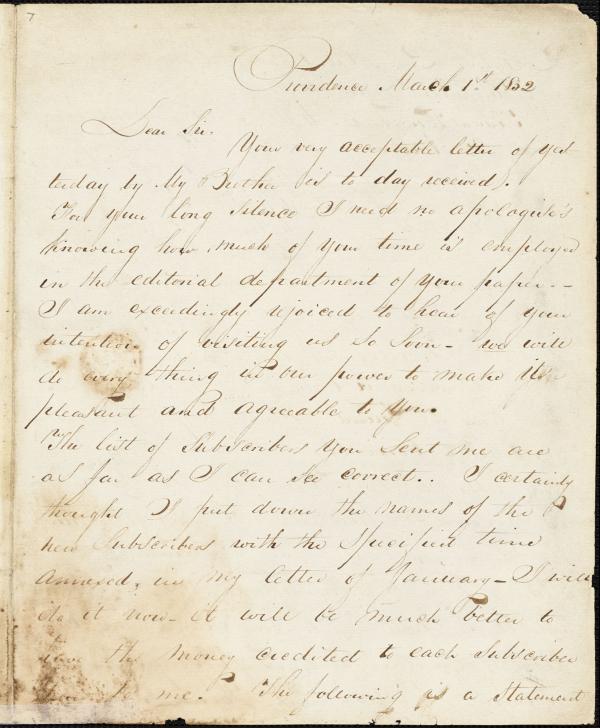 7
Providence March 1st 1832
Dear Sir.
Your very acceptable letter of yes
terday by My Brother is to day received.
For your long silence I need no apologise's
knowing how much of your time is employed
in the editorial department of your paper. –
I am exceedingly rejoiced to hear of your
intention of visiting us so soon – we will
do every thing in our power to make it
pleasant and agreeable to you.
The list of Subscribers you sent me are
as far as I can see correct.. I certainly
thought I put down the names of the
new Subscribers with the specified time
annexed, in my letter of January – I will
do it now – it will be much better to
have the money credited to each Subscriber
to me. The following is a Statement